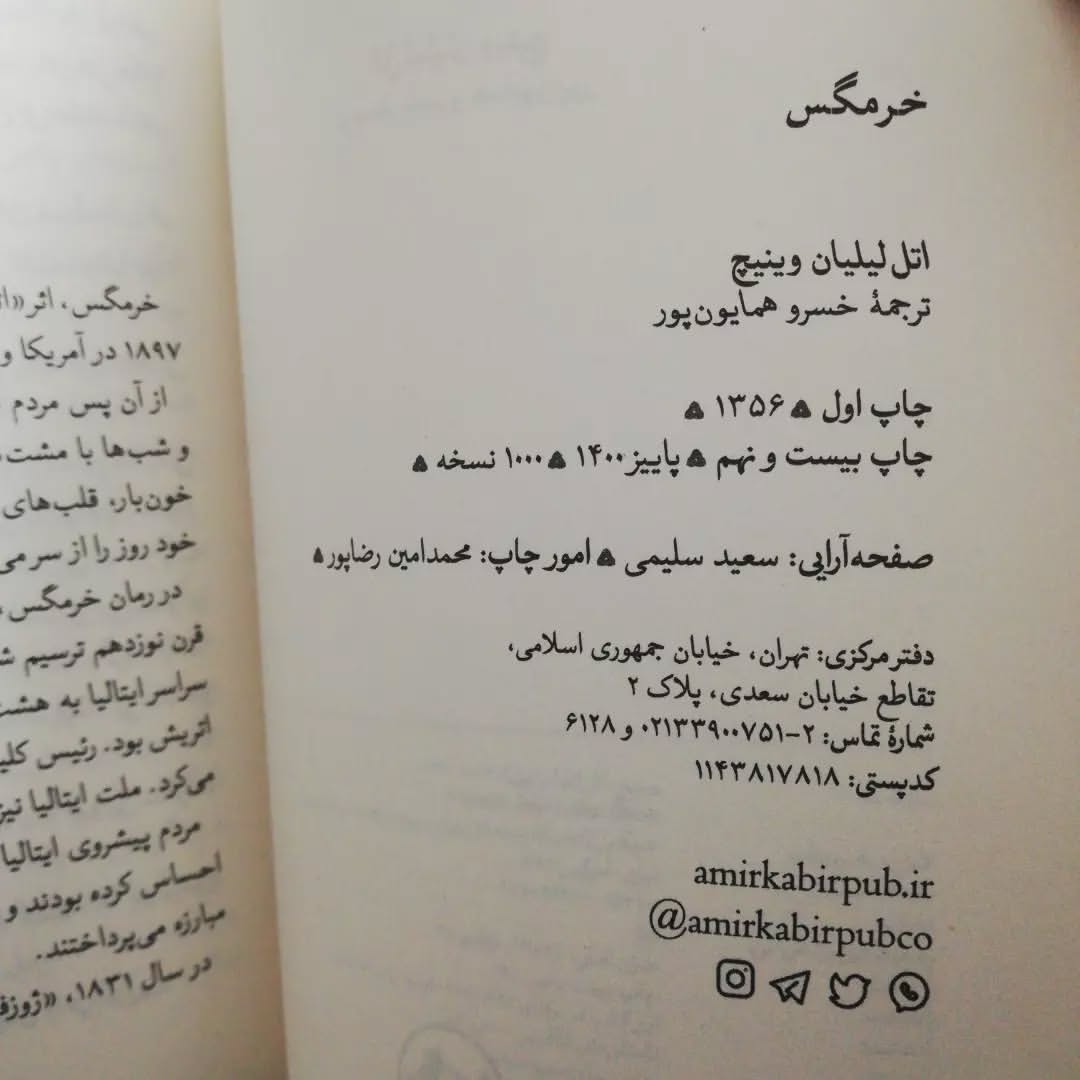 خرمگس
اتل لیلیان وینیچ
ترجمهٔ خسرو همایون‌پور
چاپ اول ۱۳۵۶
چاپ بیست و نهم پاییز ۱۴۰۰ ۱۰۰۰ نسخه
صفحه‌آرایی: سعید سلیمی امور چاپ: محمدامین رضاپور
دفتر مرکزی: تهران، خیابان جمهوری اسلامی،
تقاطع خیابان سعدی، پلاک ۲
شمارهٔ تماس: ۲-۰۲۱۳۳۹۰۰۷۵۱ و ۶۱۲۸
کدپستی: ۱۱۴۳۸۱۷۸۱۸
amirkabirpub.ir
@amirkabirpubco
خرمگس، اثر
۱۸۹۷ در آمریکا و
از آن پس مردم
و شب‌ها با مشت
خون‌بار، قلب‌های
خود روز را از سر می
در رمان خرمگس،
قرن نوزدهم ترسیم
سراسر ایتالیا به هشت
اتریش بود. رئیس
می‌کرد. ملت ایتالیا نیز
مردم پیشروی ایتالیا
احساس کرده بودند و
مبارزه می‌پرداختند.
در سال ۱۸۳۱،